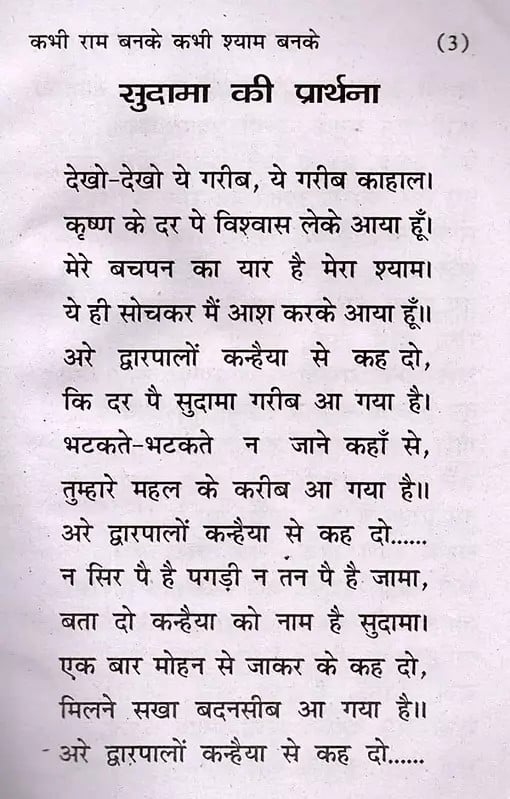 कभी राम बनके कभी श्याम बनके (3)
सुदामा की प्रार्थना
देखो-देखो ये गरीब, ये गरीब काहाल।
कृष्ण के दर पे विश्वास लेके आया हूँ।
मेरे बचपन का यार है मेरा श्याम।
ये ही सोचकर मैं आश करके आया हूँ॥
अरे द्वारपालों कन्हैया से कह दो,
कि दर पै सुदामा गरीब आ गया है।
भटकते-भटकते न जाने कहाँ से,
तुम्हारे महल के करीब आ गया है॥
अरे द्वारपालों कन्हैया से कह दो......
न सिर पै है पगड़ी न तन पै है जामा,
बता दो कन्हैया को नाम है सुदामा।
एक बार मोहन से जाकर के कह दो,
मिलने सखा बदनसीब आ गया है॥
अरे द्वारपालों कन्हैया से कह दो......